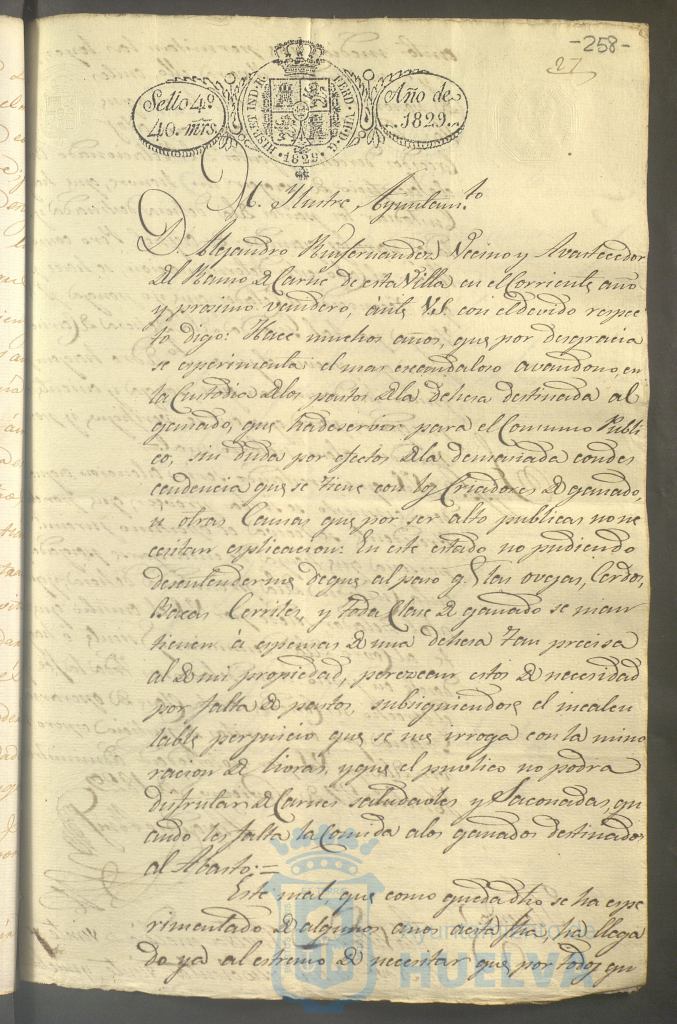 -258-
27
Sello 4.º
40. mrs.
HISP. ET IND. R.
FERD. VII. D. G.
1829.
Año de
1829.
M. Ylustre Ayuntam.to
D. Alejandro Ruifernandez Vecino y Avastecedor
del Ramo de Carne de esta Villa en el Corriente año
y procsimo venidero, ánte V.S. con el devido respe
to digo: Hace muchos años, que por desgracia
se esperimenta el mas escandaloso avandono, en
la Custodia de los pastos de la dehesa destinada al
ganado, que hadeservir para el Comsumo Publi
co, sin duda por efectos de la demasiada condes
cendencia que se tiene con los Criadores de ganado,
u otras Causas que por ser alto publicas no ne
cesitan esplicacion: En este estado no pudiendo
desentenderme de que al paso q.e las ovejas, Cerdos,
Bacas Cerriles, y toda Clase de ganado se man
tienen á espensas de una dehesa tan precisa
al de mi propiedad, perezcan estos de necesidad
por falta de pastos, subsiguiendose el incalcu
lable perjuicio que se me irroga con la mino
racion de livras, y que el publico no podra
disfrutar de Carnes saludables y Saconadas, qu
ando les falta la Comida a los ganados destinados
al Abasto:=
Este mal, que como queda dho se ha espe
rimentado de algunos anos acia fha, ha llega
do ya al estremo de necesitar que por todos qu
Ayuntamiento de
HUELVA